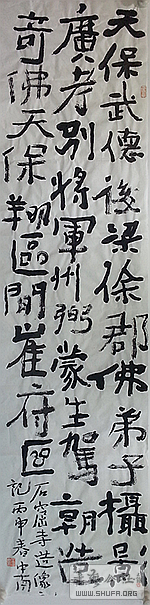 天保武德後梁徐郡佛弟子攝影
廣考別將軍州弼蒙生駕朝造
奇佛天保翔區閒崔府區
石窟寺造像
記丙申春中南
WWW.SHUFA.ORG